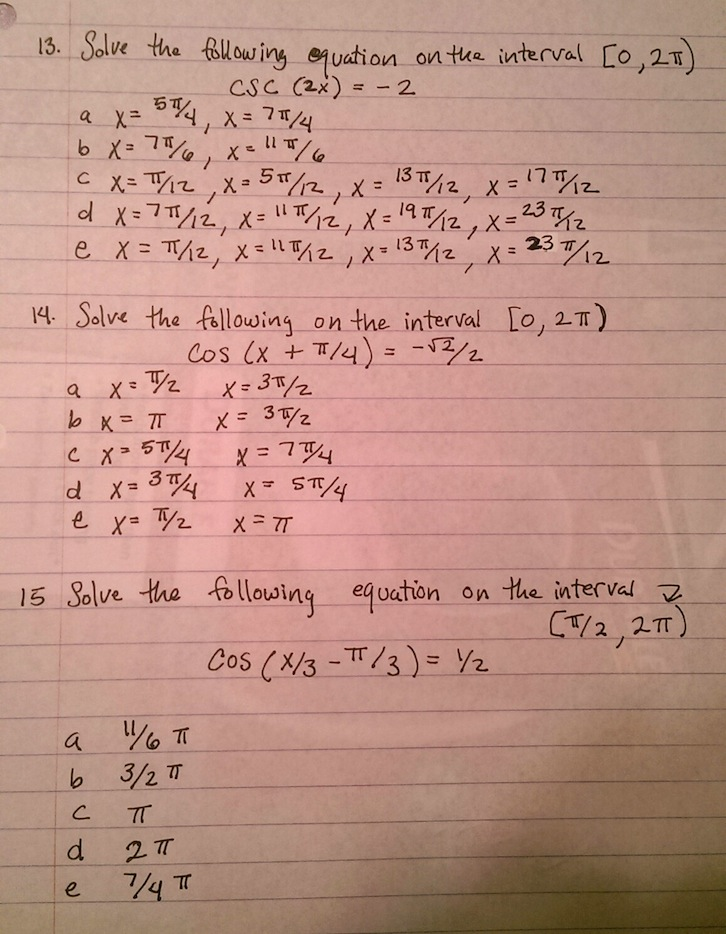 13. Solve the following equation on the interval [0, 2π)
csc (2x) = -2
a x = 5π/4, x = 7π/4
b x = 7π/6, x = 11π/6
c x = π/12, x = 5π/12, x = 13π/12, x = 17π/12
d x = 7π/12, x = 11π/12, x = 19π/12, x = 23π/12
e x = π/12, x = 11π/12, x = 13π/12, x = 23π/12
14. Solve the following on the interval [0, 2π)
cos (x + π/4) = -√2/2
a x = π/2 x = 3π/2
b x = π x = 3π/2
c x = 5π/4 x = 7π/4
d x = 3π/4 x = 5π/4
e x = π/2 x = π
15 Solve the following equation on the interval
[π/2, 2π)
cos (x/3 - π/3) = 1/2
a 11/6 π
b 3/2 π
c π
d 2π
e 7/4 π